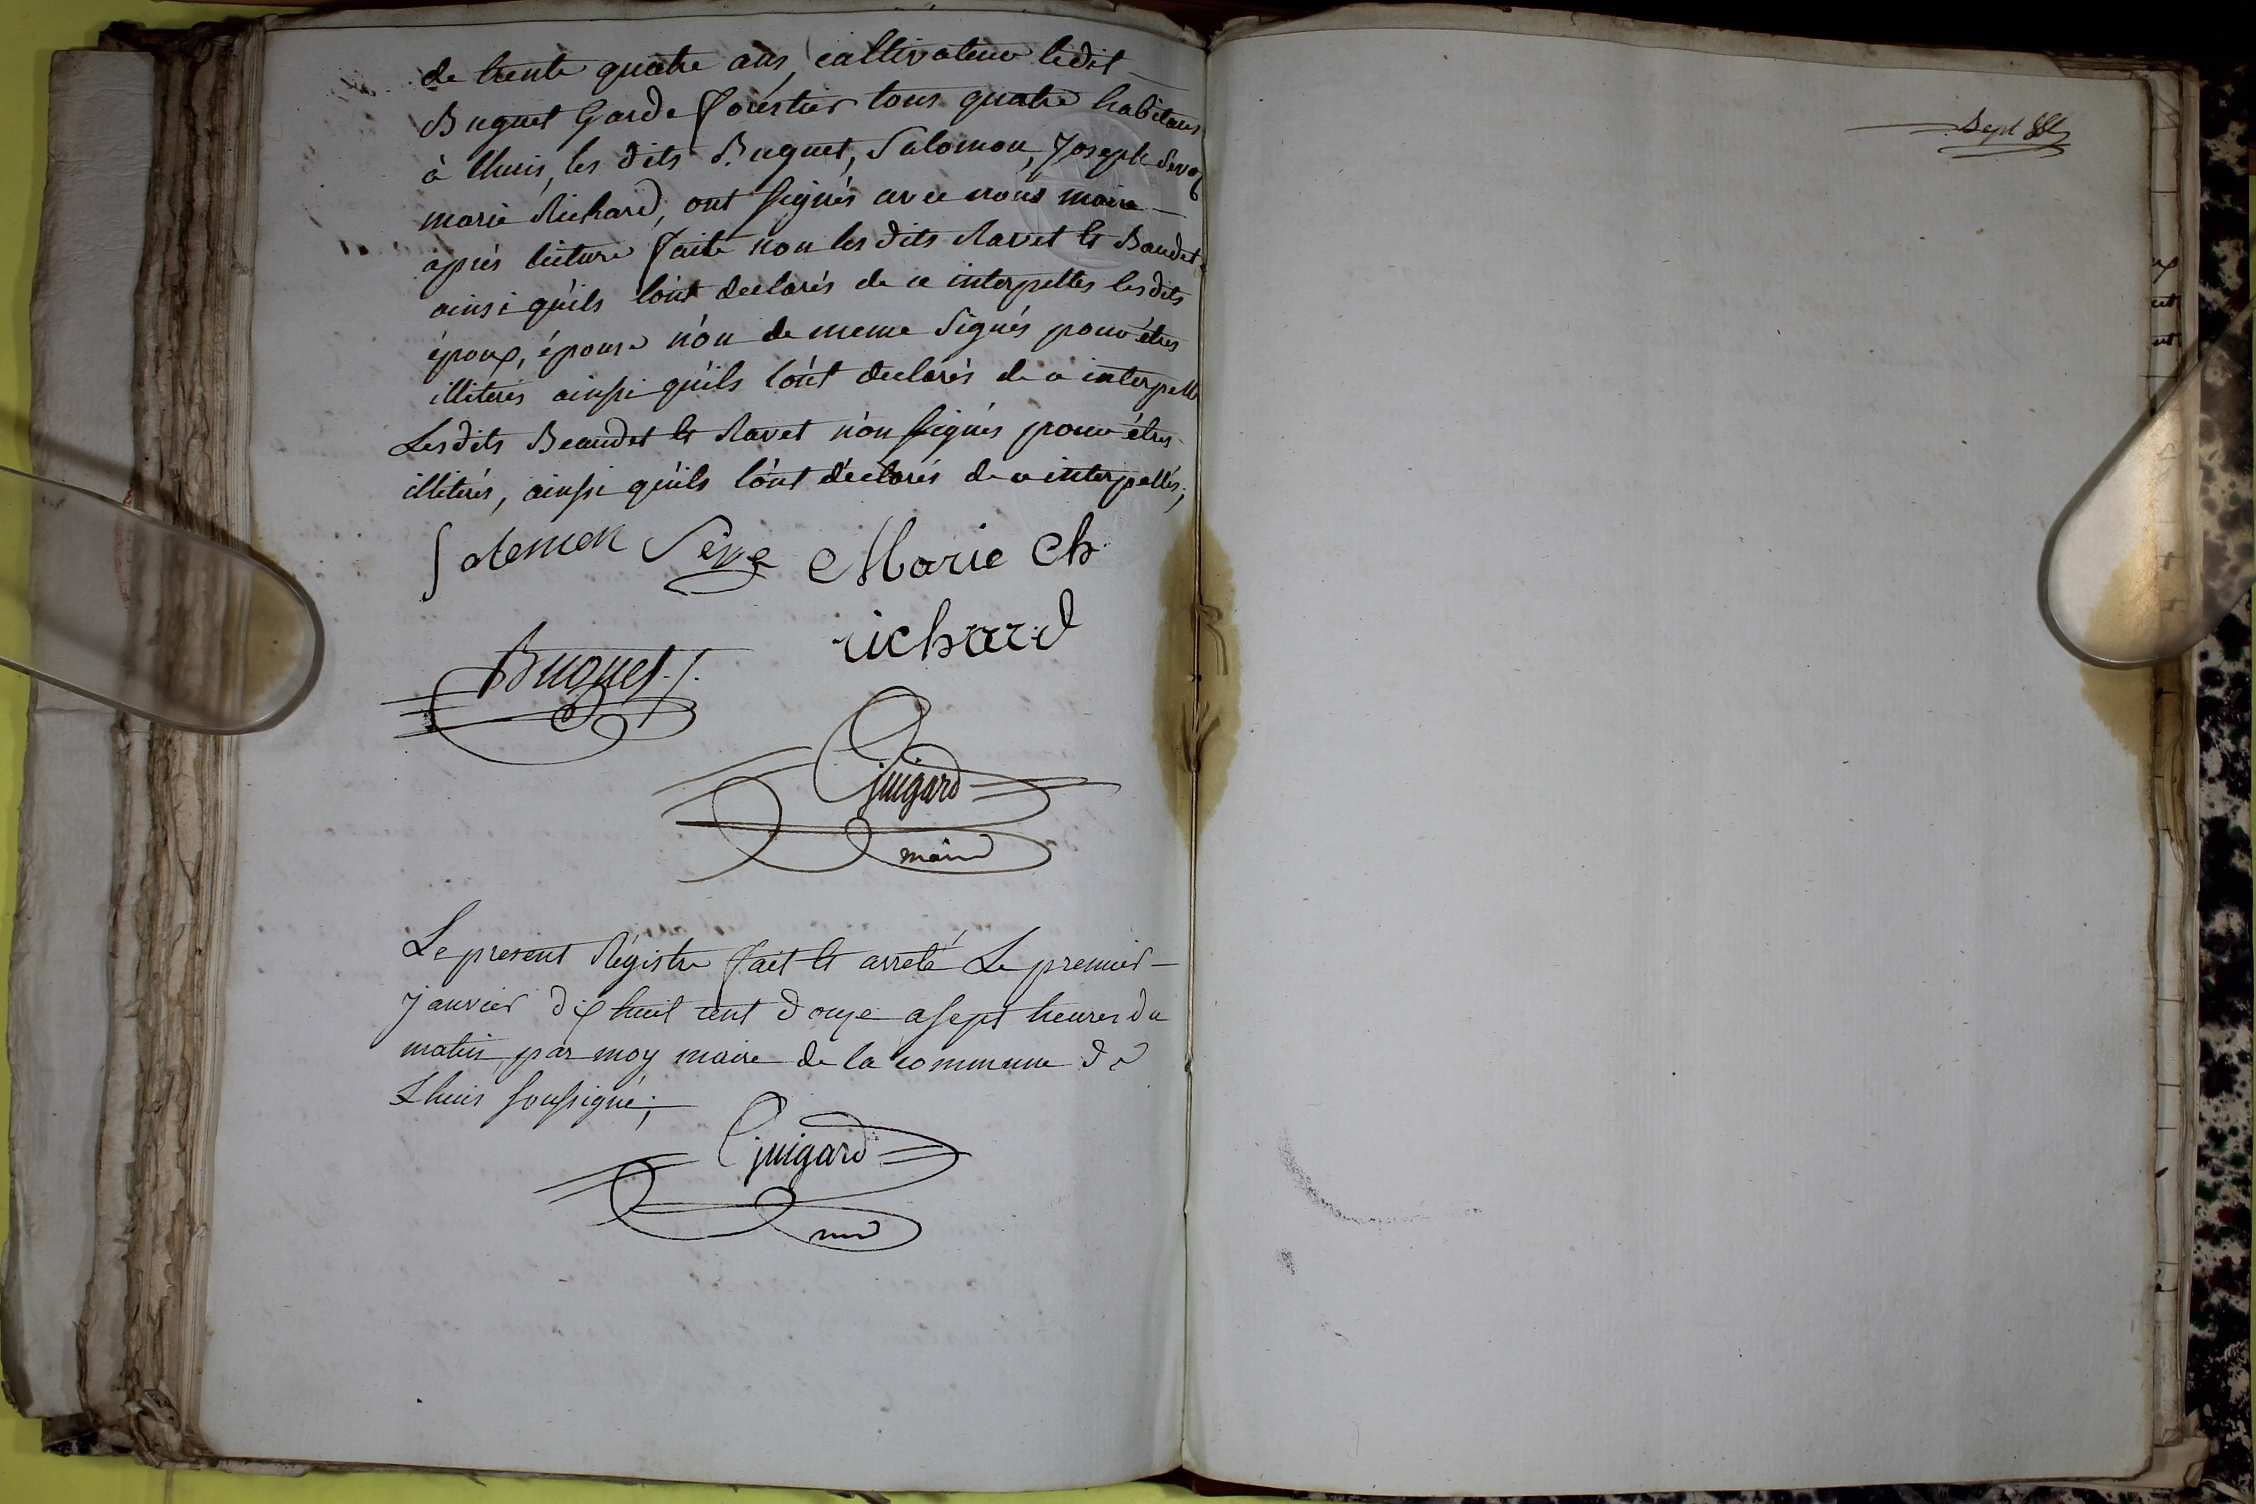 de trente quatre ans, cultivateur ledit
Buguet Garde foréstier tous quatre habitans
à lhuis, les dits Buguet, Salomon, Joseph Seve
marie Richard, ont signés avec nous maire
aprés lécture faite non les dits Ravet et Baudet
ainsi qu'ils l'ont declarés de ce interpelles les dits
époux, épouse n'on de meme signés pour étres
illiterés ainssi qu'ils l'ont declarés de ce interpell
Lesdits Beaudet et Ravet n'on signés pour étres
illiterés, ainssi qu'ils l'ont déclarés de ce interpellés;
Salemon Seve Marie Ch
richard
Buguet
Guigard
maire
Le present Régistre fait et arreté Le premier
janvier dix huit cent douze a sept heures du
matin, par moy maire de la commune de
Lhuis soussigné;
Guigard
Sept